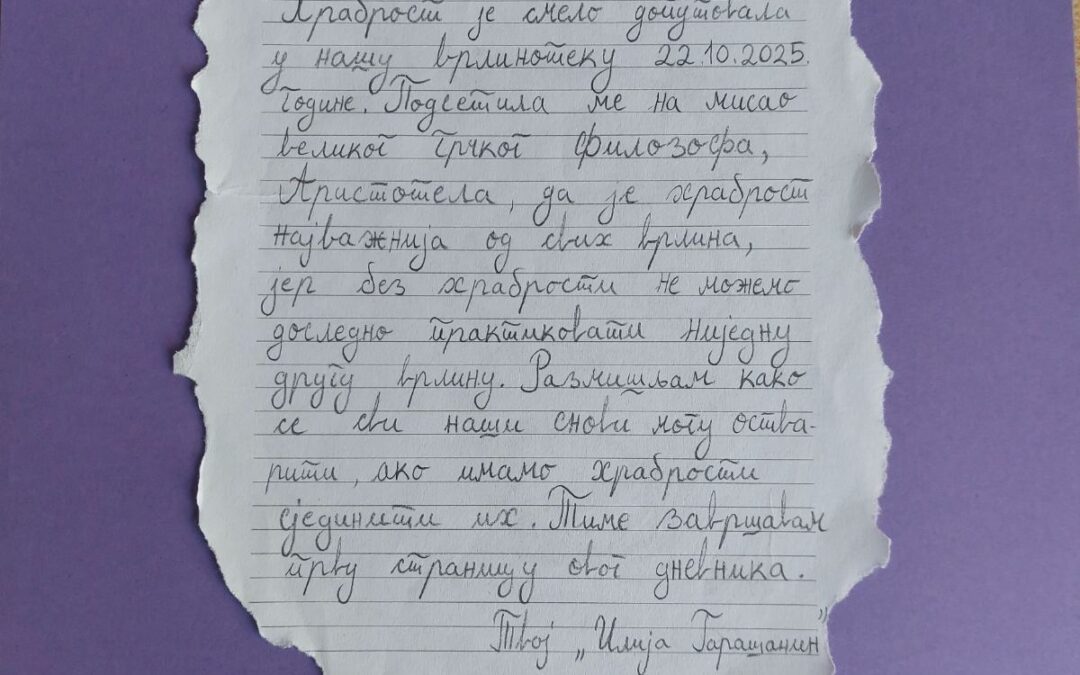 Храброст је смело допутовала
у нашу врлинотеку 22.10.2025.
године. Подсетила ме на мисао
великог грчког филозофа,
Аристотела, да је храброст
најважнија од свих врлина,
јер без храбрости не можемо
доследно практиковати ниједну
другу врлину. Размишљам како
се сви наши снови могу оства-
рити, ако имамо храбрости
сјединити их. Тиме завршавам
прву страницу овог дневника.
Твој „Илија Гарашанин”